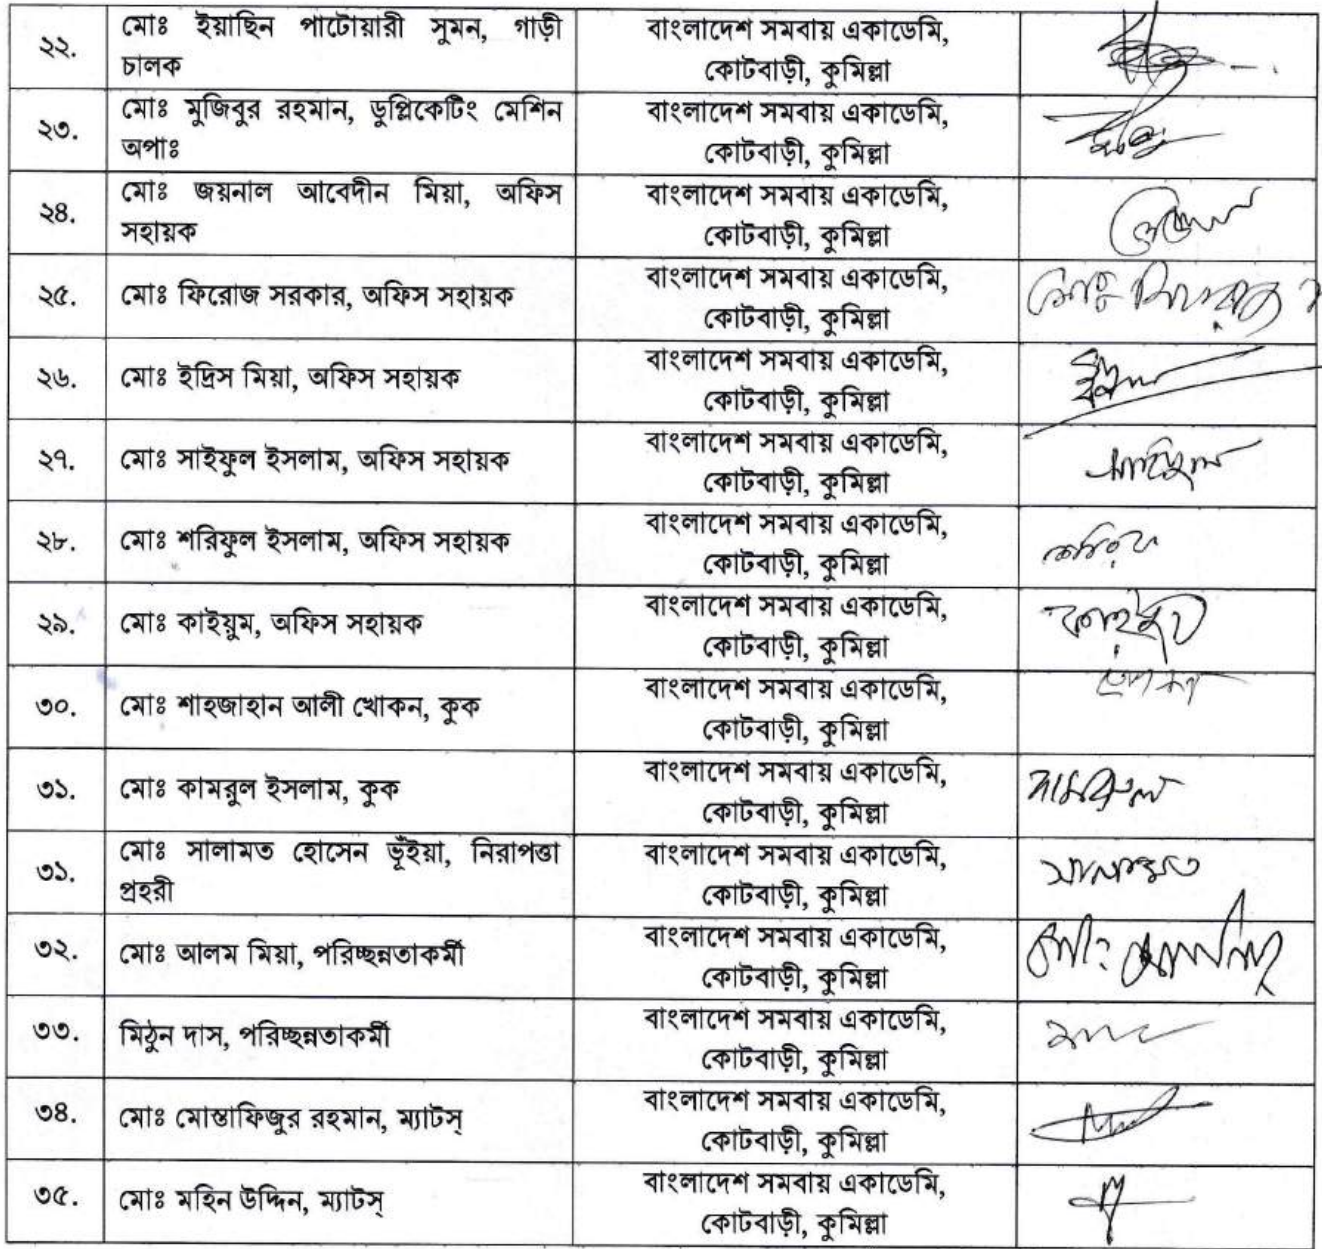 ২২.
মোঃ ইয়াছিন পাটোয়ারী সুমন, গাড়ী
চালক
বাংলাদেশ সমবায় একাডেমি,
কোটবাড়ী, কুমিল্লা
২৩.
মোঃ মুজিবুর রহমান, ডুপ্লিকেটিং মেশিন
অপাঃ
বাংলাদেশ সমবায় একাডেমি,
কোটবাড়ী, কুমিল্লা
২৪.
মোঃ জয়নাল আবেদীন মিয়া, অফিস
সহায়ক
বাংলাদেশ সমবায় একাডেমি,
কোটবাড়ী, কুমিল্লা
২৫.
মোঃ ফিরোজ সরকার, অফিস সহায়ক
বাংলাদেশ সমবায় একাডেমি,
কোটবাড়ী, কুমিল্লা
২৬.
মোঃ ইদ্রিস মিয়া, অফিস সহায়ক
বাংলাদেশ সমবায় একাডেমি,
কোটবাড়ী, কুমিল্লা
২৭.
মোঃ সাইফুল ইসলাম, অফিস সহায়ক
বাংলাদেশ সমবায় একাডেমি,
কোটবাড়ী, কুমিল্লা
২৮.
মোঃ শরিফুল ইসলাম, অফিস সহায়ক
বাংলাদেশ সমবায় একাডেমি,
কোটবাড়ী, কুমিল্লা
২৯.
মোঃ কাইয়ুম, অফিস সহায়ক
বাংলাদেশ সমবায় একাডেমি,
কোটবাড়ী, কুমিল্লা
৩০.
মোঃ শাহজাহান আলী খোকন, কুক
বাংলাদেশ সমবায় একাডেমি,
কোটবাড়ী, কুমিল্লা
৩১.
মোঃ কামরুল ইসলাম, কুক
বাংলাদেশ সমবায় একাডেমি,
কোটবাড়ী, কুমিল্লা
৩১.
মোঃ সালামত হোসেন ভূঁইয়া, নিরাপত্তা
প্রহরী
বাংলাদেশ সমবায় একাডেমি,
কোটবাড়ী, কুমিল্লা
৩২.
মোঃ আলম মিয়া, পরিচ্ছন্নতাকর্মী
বাংলাদেশ সমবায় একাডেমি,
কোটবাড়ী, কুমিল্লা
৩৩.
মিঠুন দাস, পরিচ্ছন্নতাকর্মী
বাংলাদেশ সমবায় একাডেমি,
কোটবাড়ী, কুমিল্লা
৩৪.
মোঃ মোস্তাফিজুর রহমান, ম্যাটস্
বাংলাদেশ সমবায় একাডেমি,
কোটবাড়ী, কুমিল্লা
৩৫.
মোঃ মহিন উদ্দিন, ম্যাটস্
বাংলাদেশ সমবায় একাডেমি,
কোটবাড়ী, কুমিল্লা